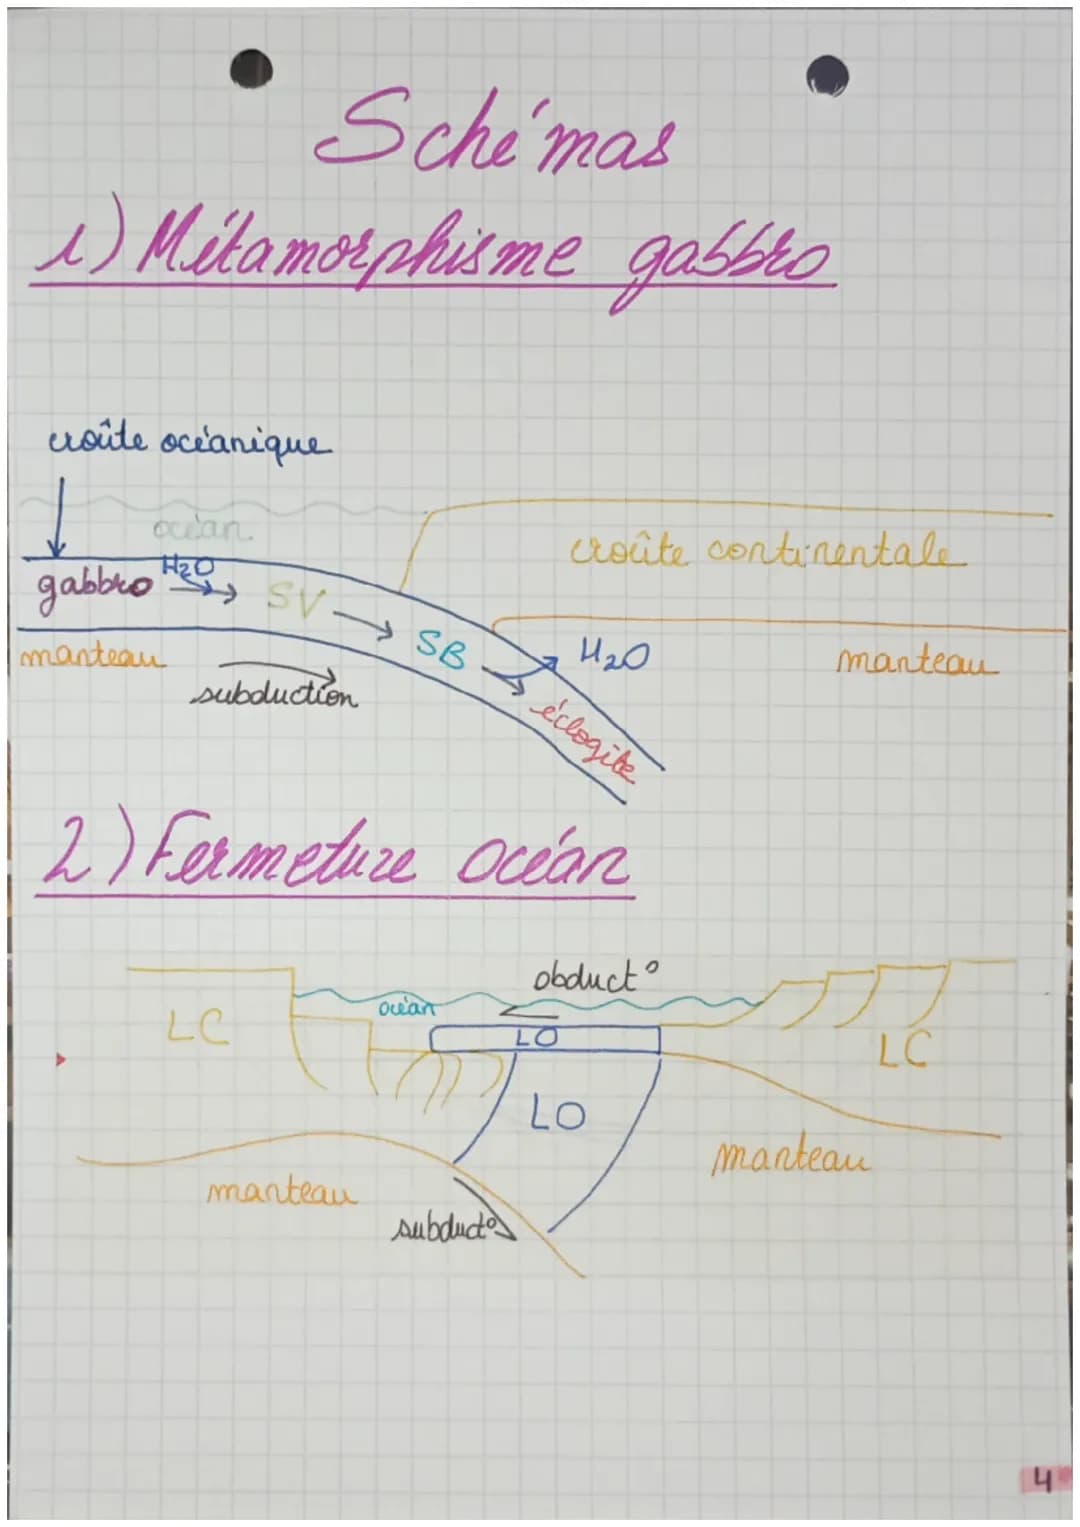 Schémas
1) Métamorphisme gabbro
croûte océanique
océan
croûte continentale
gabbro H2O SV
SB H2O
manteau manteau
subduction
éclogite
2) Fermeture Océan
obduct°
océan
LC LO LC
LO
manteau
manteau
subduct°
4